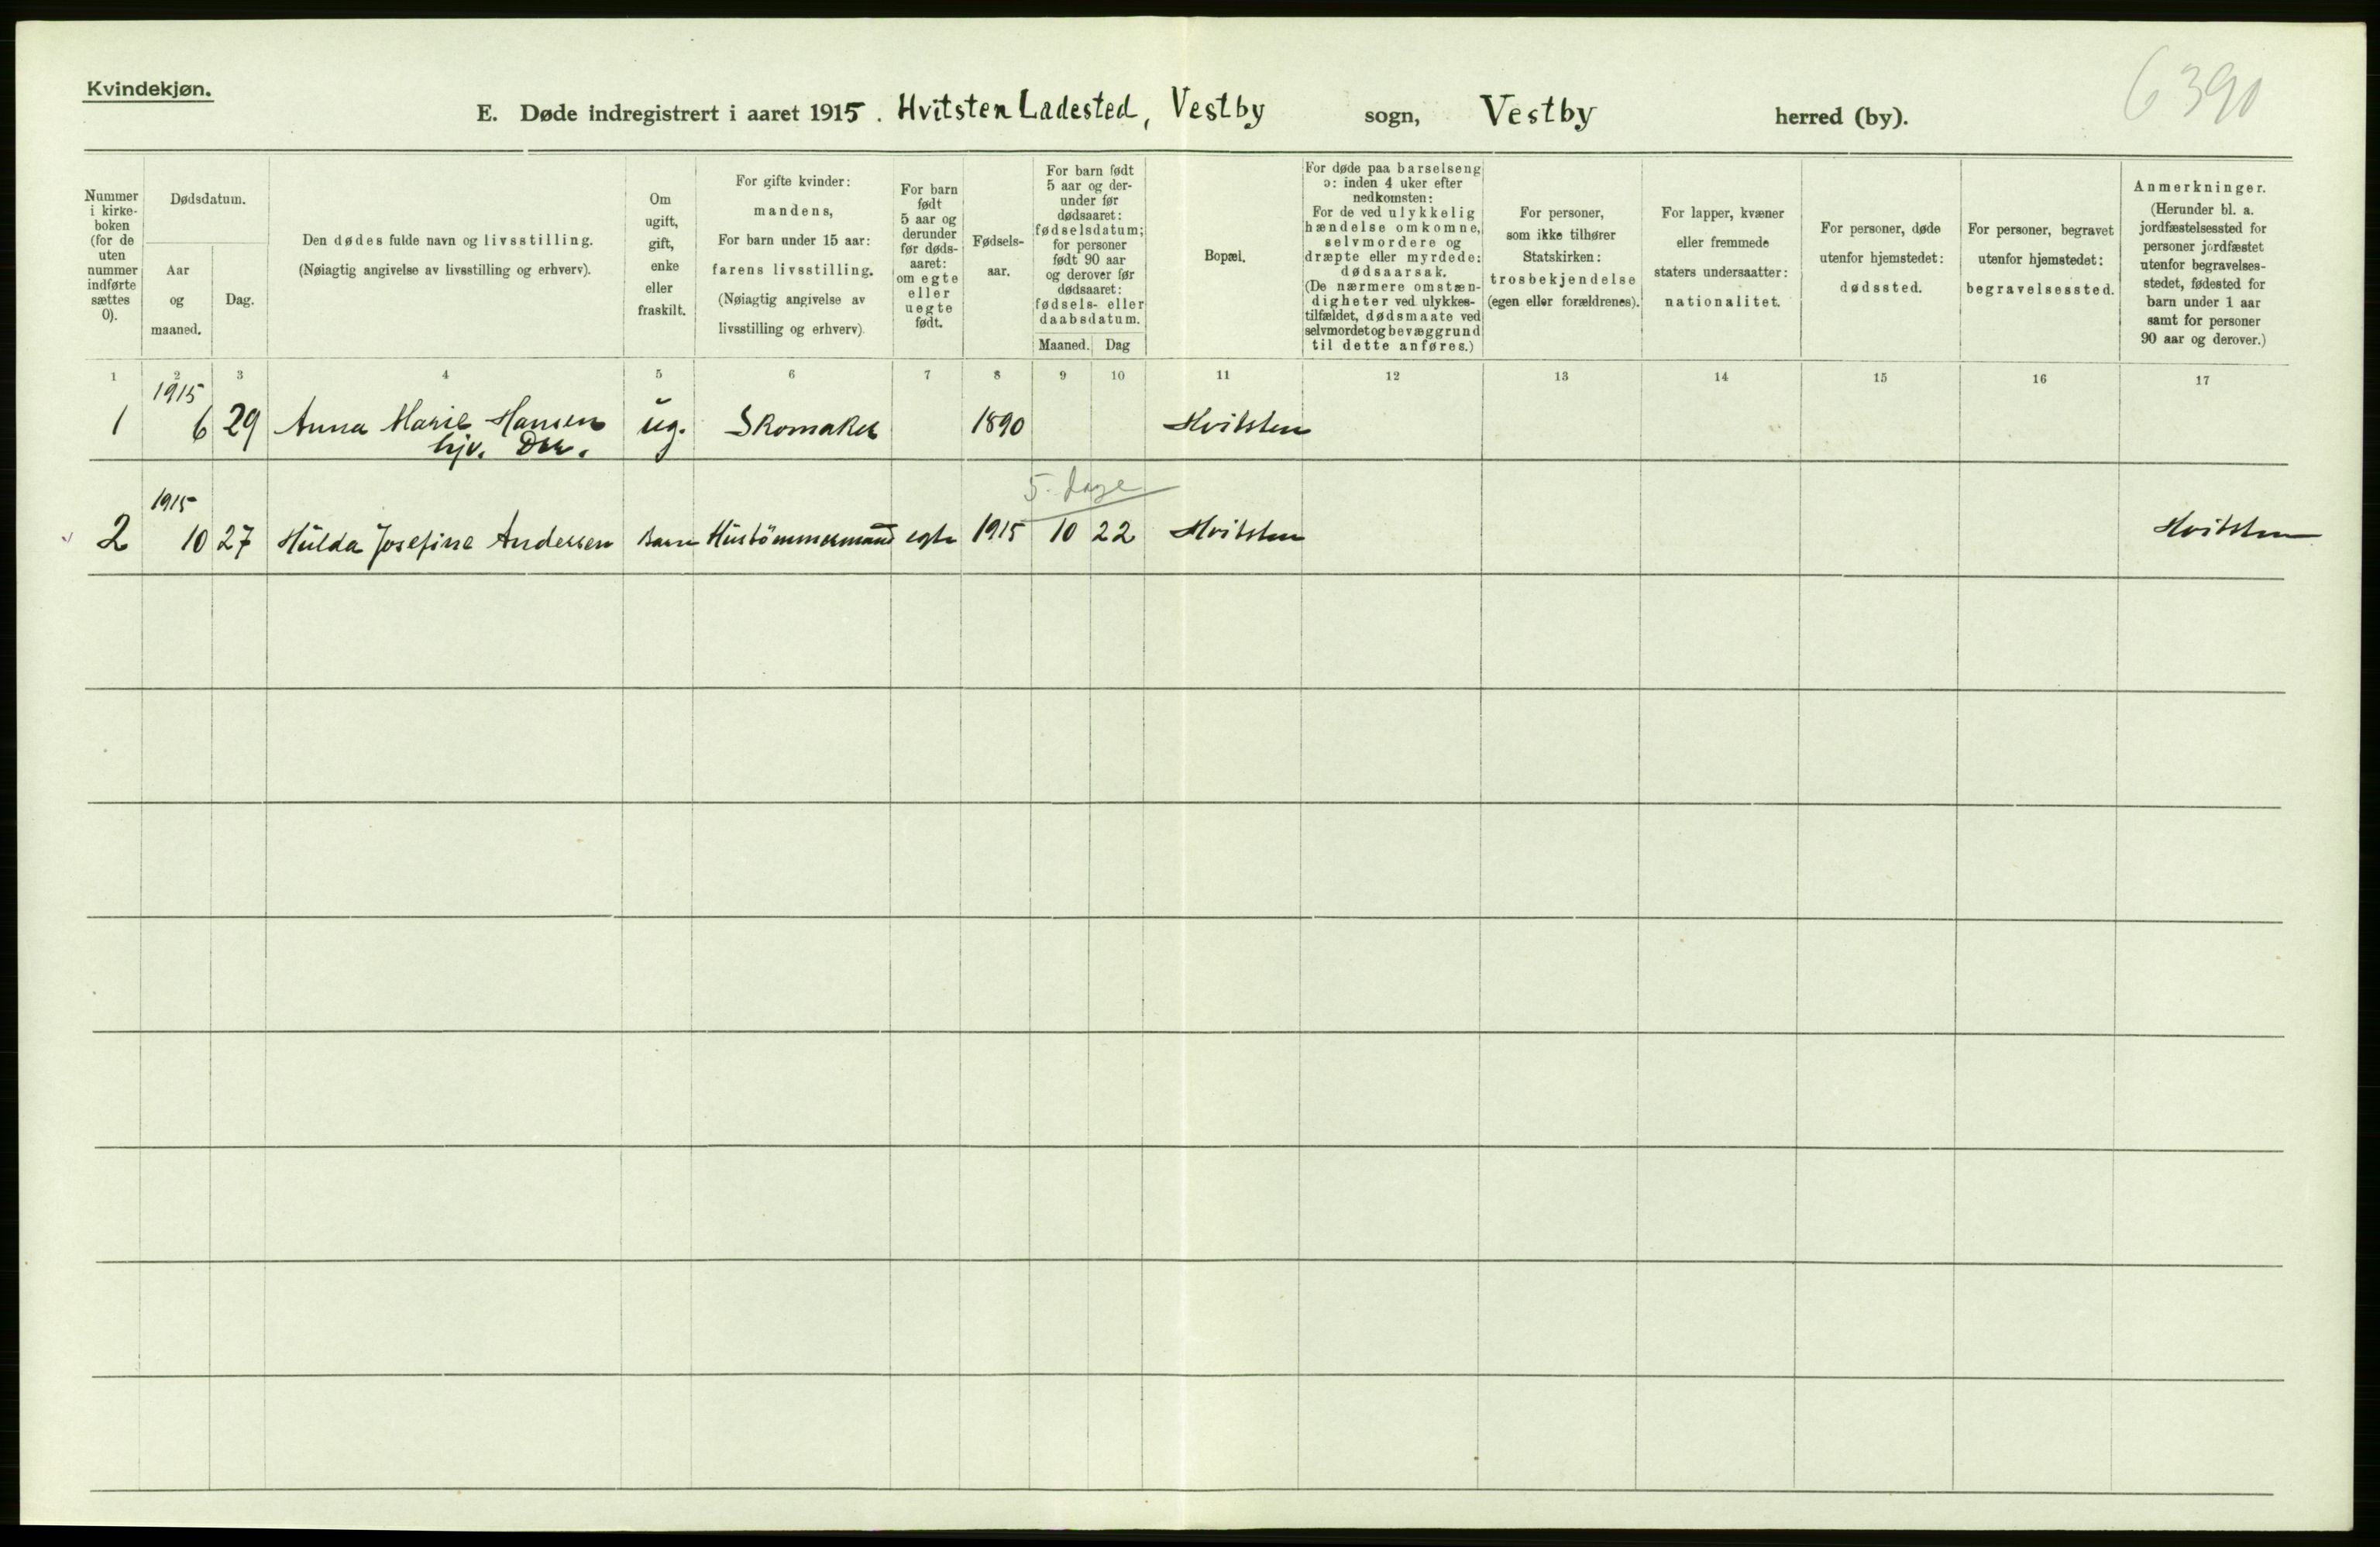 Kvindekjøn.
6390
E. Døde indregistrert i aaret 1915. Hvitsten Ladested, Vestby sogn, Vestby herred (by).
Nummer
i kirke-
boken
(for de
uten
nummer
indførte
sættes
0).
Dødsdatum.
Aar
og
maaned.
Dag.
Den dødes fulde navn og livsstilling.
(Nøiagtig angivelse av livsstilling og erhverv).
Om
ugift,
gift,
enke
eller
fraskilt.
For gifte kvinder:
mandens,
For barn under 15 aar:
farens livsstilling.
(Nøiagtig angivelse av
livsstilling og erhverv)
For barn
født
5 aar og
derunder
før døds-
aaret:
om egte
eller
uegte
født.
Fødsels-
aar.
For barn født
5 aar og der-
under før
dødsaaret:
fødselsdatum;
for personer
født 90 aar
og derover før
dødsaaret:
fødsels- eller
daabsdatum.
Maaned. Dag
Bopæl.
For døde paa barselseng
ɔ: inden 4 uker efter
nedkomsten:
For de ved ulykkelig
hændelse omkomne,
selvmordere og
dræpte eller myrdede:
dødsaarsak.
(De nærmere omstæn-
digheter ved ulykkes-
tilfældet, dødsmaate ved
selvmordet og bevæggrund
til dette anføres.)
For personer,
som ikke tilhører
Statskirken:
trosbekjendelse
(egen eller forældrenes).
For lapper, kvæner
eller fremmede
staters undersaatter:
nationalitet.
For personer, døde
utenfor hjemstedet:
dødssted.
For personer, begravet
utenfor hjemstedet:
begravelsessted.
Anmerkninger.
(Herunder bl. a.
jordfæstelsessted for
personer jordfæstet
utenfor begravelses-
stedet, fødested for
barn under 1 aar
samt for personer
90 aar og derover.)
1 2 3 4 5 6 7 8 9 10 11 12 13 14 15 16 17
1915
1 6 29 Anna Marie Hansen ug. Skomaker 1890 Hvitsten
hjv. Dtr.
5 dage
1915
2 10 27 Hulda Josefine Andersen Barn Hustömmermand egte 1915 10 22 Hvitsten Hvitsten